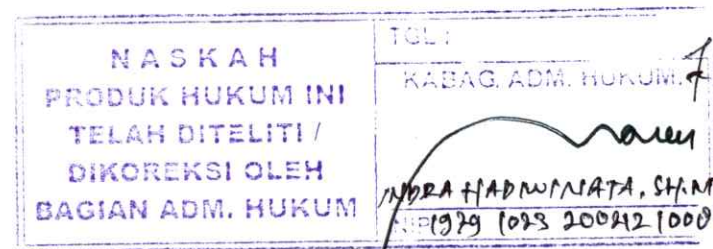 NASKAH
PRODUK HUKUM INI
TELAH DITELITI /
DIKOREKSI OLEH
BAGIAN ADM. HUKUM
TGL :
KABAG. ADM. HUKUM.
INDRA HADIWINATA, SH.M
NIP 1979 1023 200212 1008